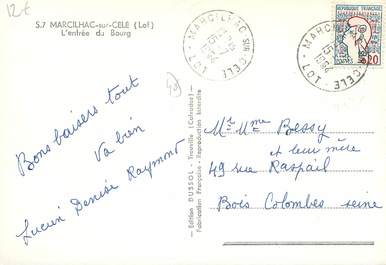 12€
S.7 MARCILHAC-sur-CELE (Lot)
L'entrée du Bourg
MARCILHAC SUR CELE
LOT
REPUBLIQUE FRANCAISE
POSTES
0,20
Bons baisers tout
va bien
Lucien Denise Raymont
— Edition DUSSOL - Trouville (Calvados) —
Fabrication Française - Reproduction Interdite
Mr Mme Bessy
et leur mère
49 rue Raspail
Bois Colombes seine